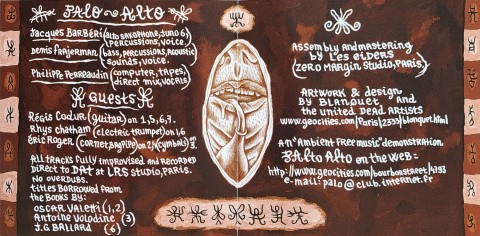 Palo Alto
Jacques Barbéri (alto saxophone, Juno 6, percussions, voice.
Denis Frajerman (bass, percussions, acoustic sounds, voice.
Philippe Perreaudin (computer, tapes, direct mix, vocals)
Guests
Régis Codur (guitar) on 1,5,6,7.
Rhys Chatham (electric trumpet) on 1,6
Eric Roger (cornet, bagpipe) on 2, (cymbals)
All tracks fully improvised and recorded
direct to DAT at LRS studio, Paris.
No overdubs.
Titles borrowed from
the books by:
Oscar Valetti (1,2)
Antoine Volodine (3)
J.G Ballard (6)
Assembly and mastering
by Les Eiders
(Zero Margin Studio, Paris)
Artwork & design
by Blanquet and
the United Dead Artists
www.geocities.com/Paris/2555/blanquet.html
An "Ambient Free music" demonstration
Palto Alto on the web:
http://www.geocities.com/bourbonstreet/4793
e-mail: palo@club.internet.fr